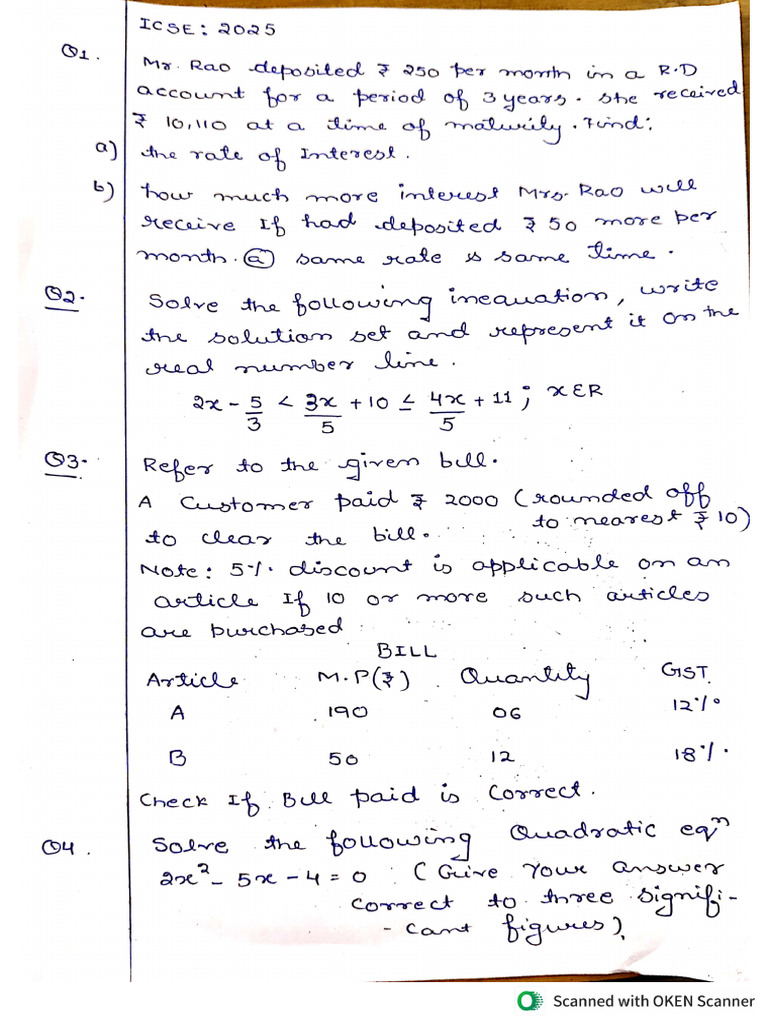 ICSE: 2025
Q1. Mr. Rao deposited ₹ 250 per month in a R.D
account for a period of 3 years. She received
₹ 10,110 at a time of maturity. Find:
a) the rate of Interest.
b) how much more interest Mrs. Rao will
receive If had deposited ₹ 50 more per
month. @ same rate & same time.
Q2. Solve the following inequation, write
the solution set and represent it on the
real number line.
2x - 5/3 < 3x/5 + 10 ≤ 4x/5 + 11; x ER
Q3. Refer to the given bill.
A Customer paid ₹ 2000 (rounded off
to nearest ₹ 10)
to clear the bill.
Note: 5% discount is applicable on an
article If 10 or more such articles
are purchased
BILL
Article M.P(₹) Quantity GST.
A 190 06 12%
B 50 12 18%.
Check If Bill paid is Correct.
Q4. Solve the following Quadratic eqn
2x² - 5x - 4 = 0 (Give Your answer
correct to three signifi-
-cant figures).
Scanned with OKEN Scanner